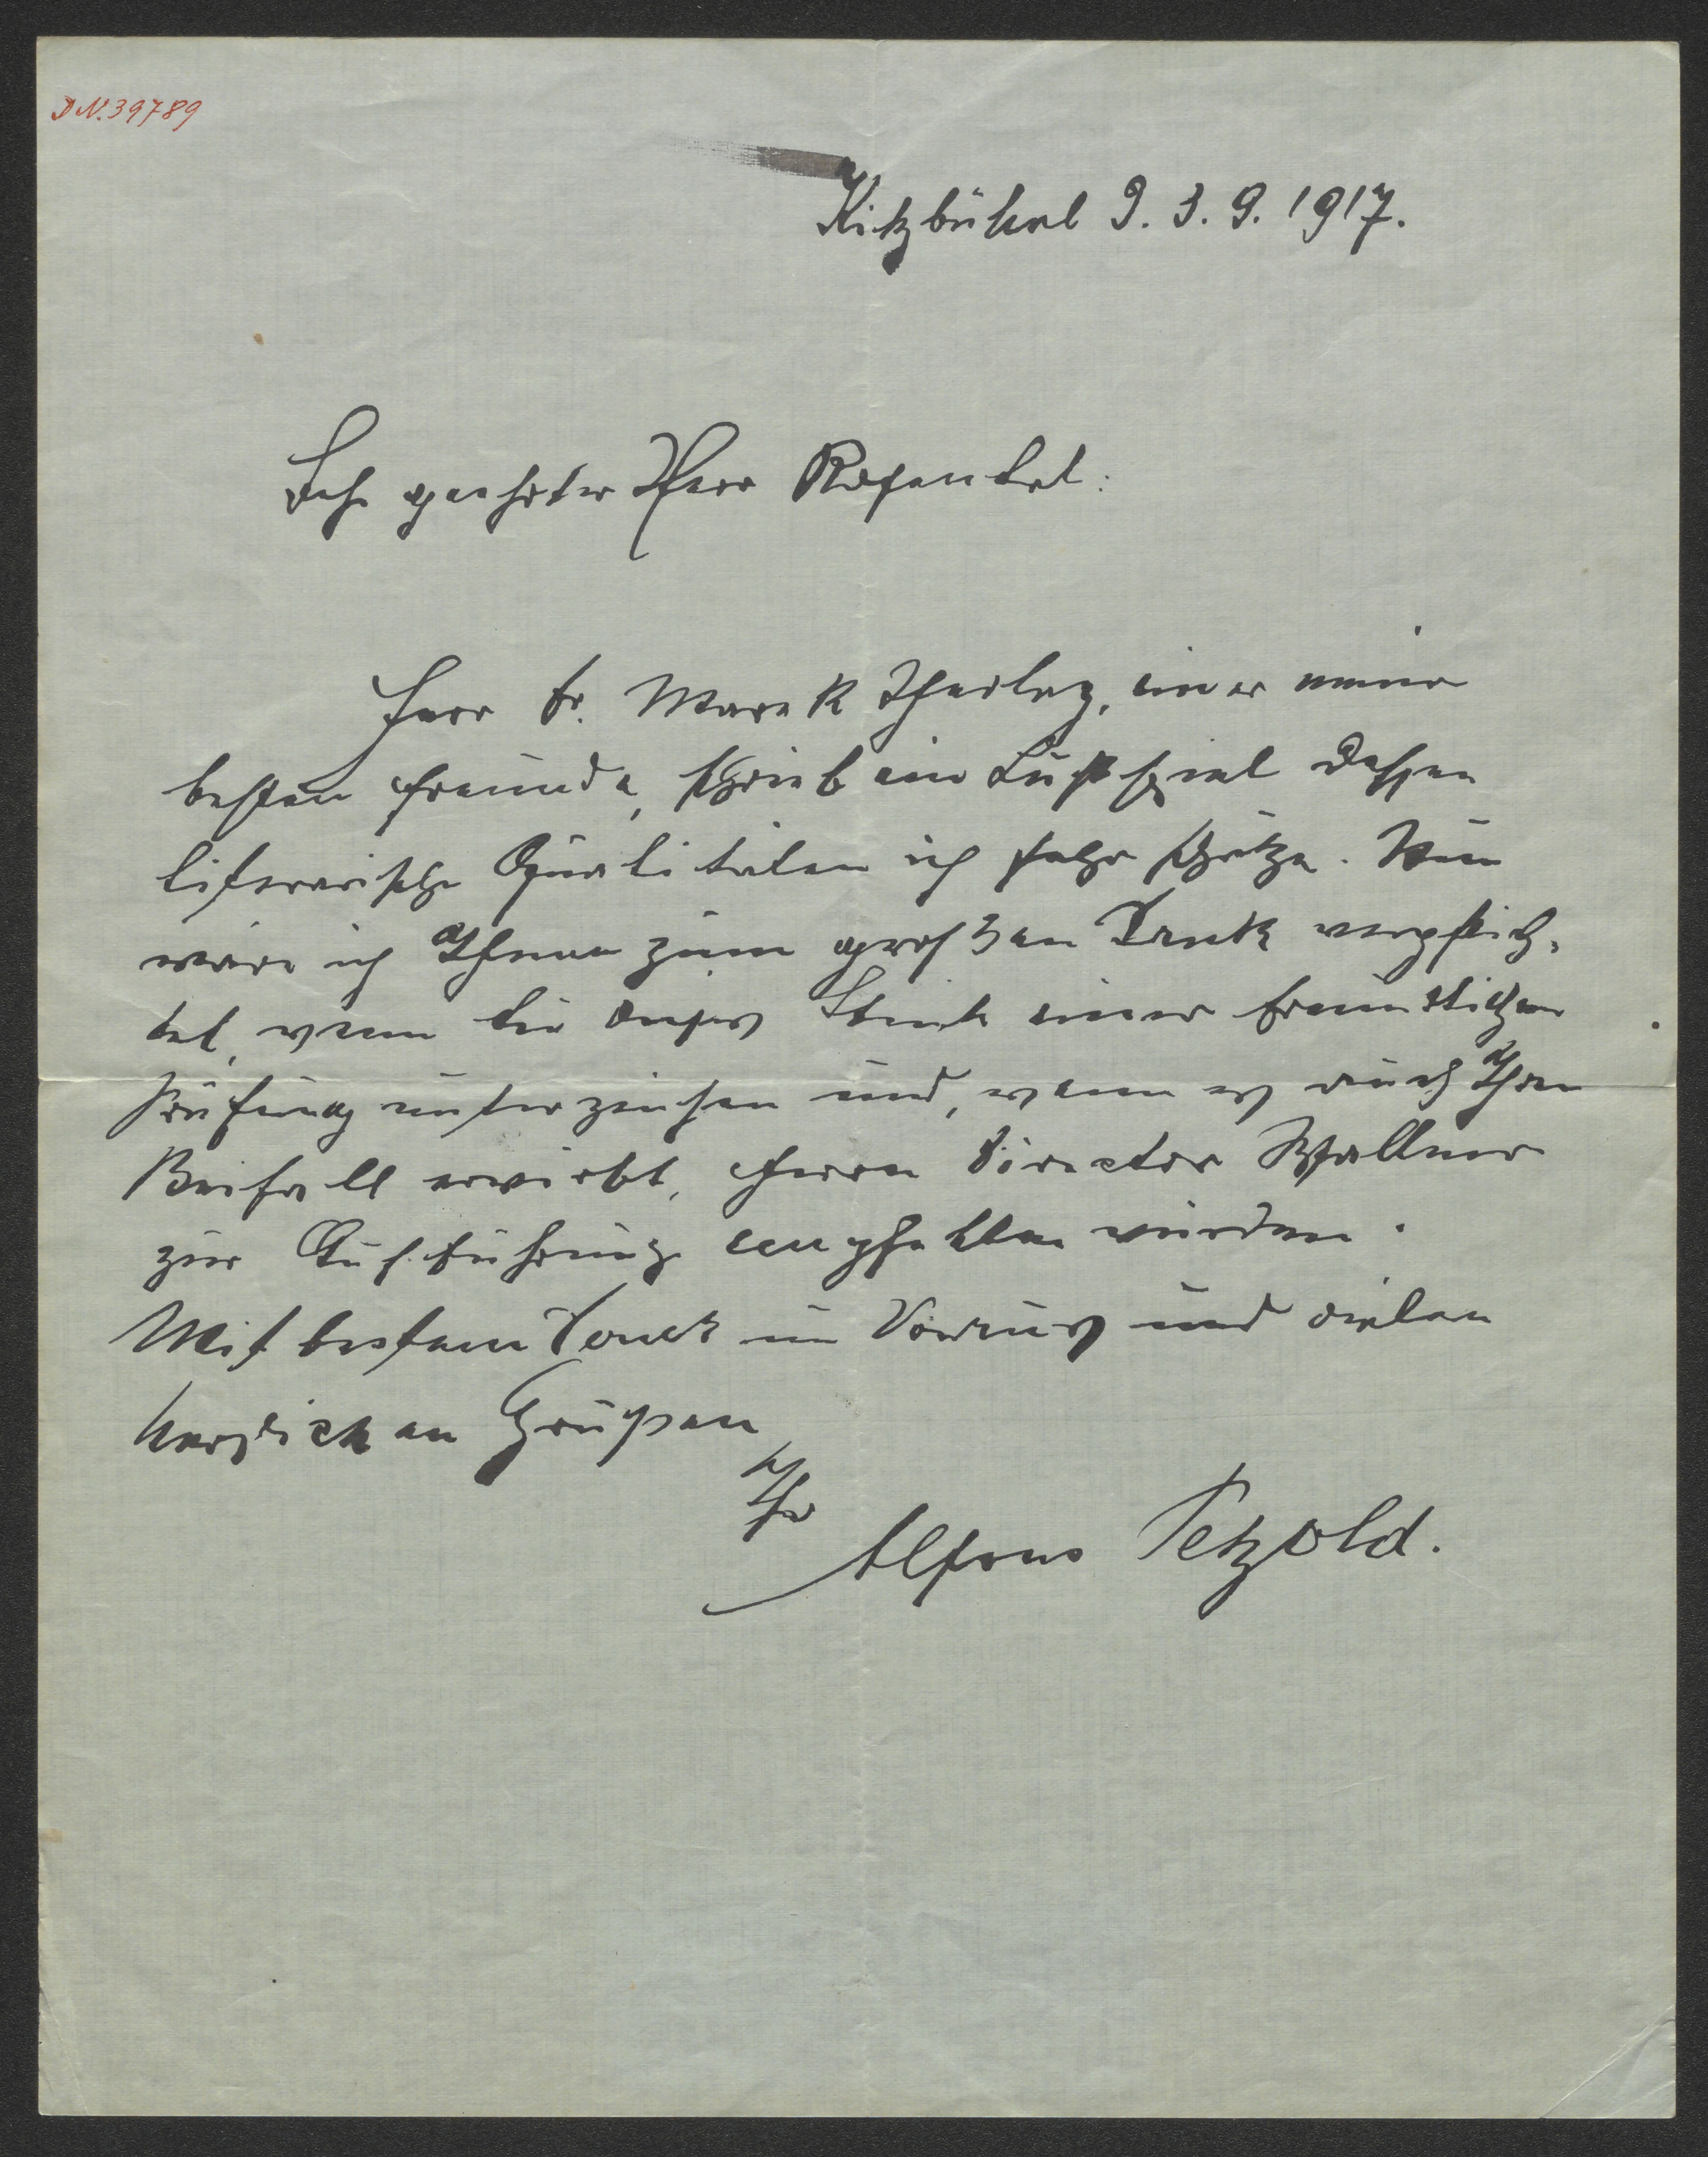 DN. 39789
Kitzbühel 9. 3. 9. 1917.
Sehr geehrter Herr Rosental:
Herr Dr. Marek Scherlag, einer meiner
besten Freunde, schrieb ein Lustspiel dessen
literarische Qualitäten ich sehr schätze. Nun
wäre ich Ihnen zum großen Dank verpflich-
tet, wenn Sie dieses Stück einer freundlichen
Prüfung unterziehen und, wenn es auch Ihren
Beifall erwirbt, Herrn Director Wallner
zur Aufführung empfehlen würden.
Mit bestem Dank im Voraus und vielen
herzlichen Grüßen
Ihr
Alfons Petzold.